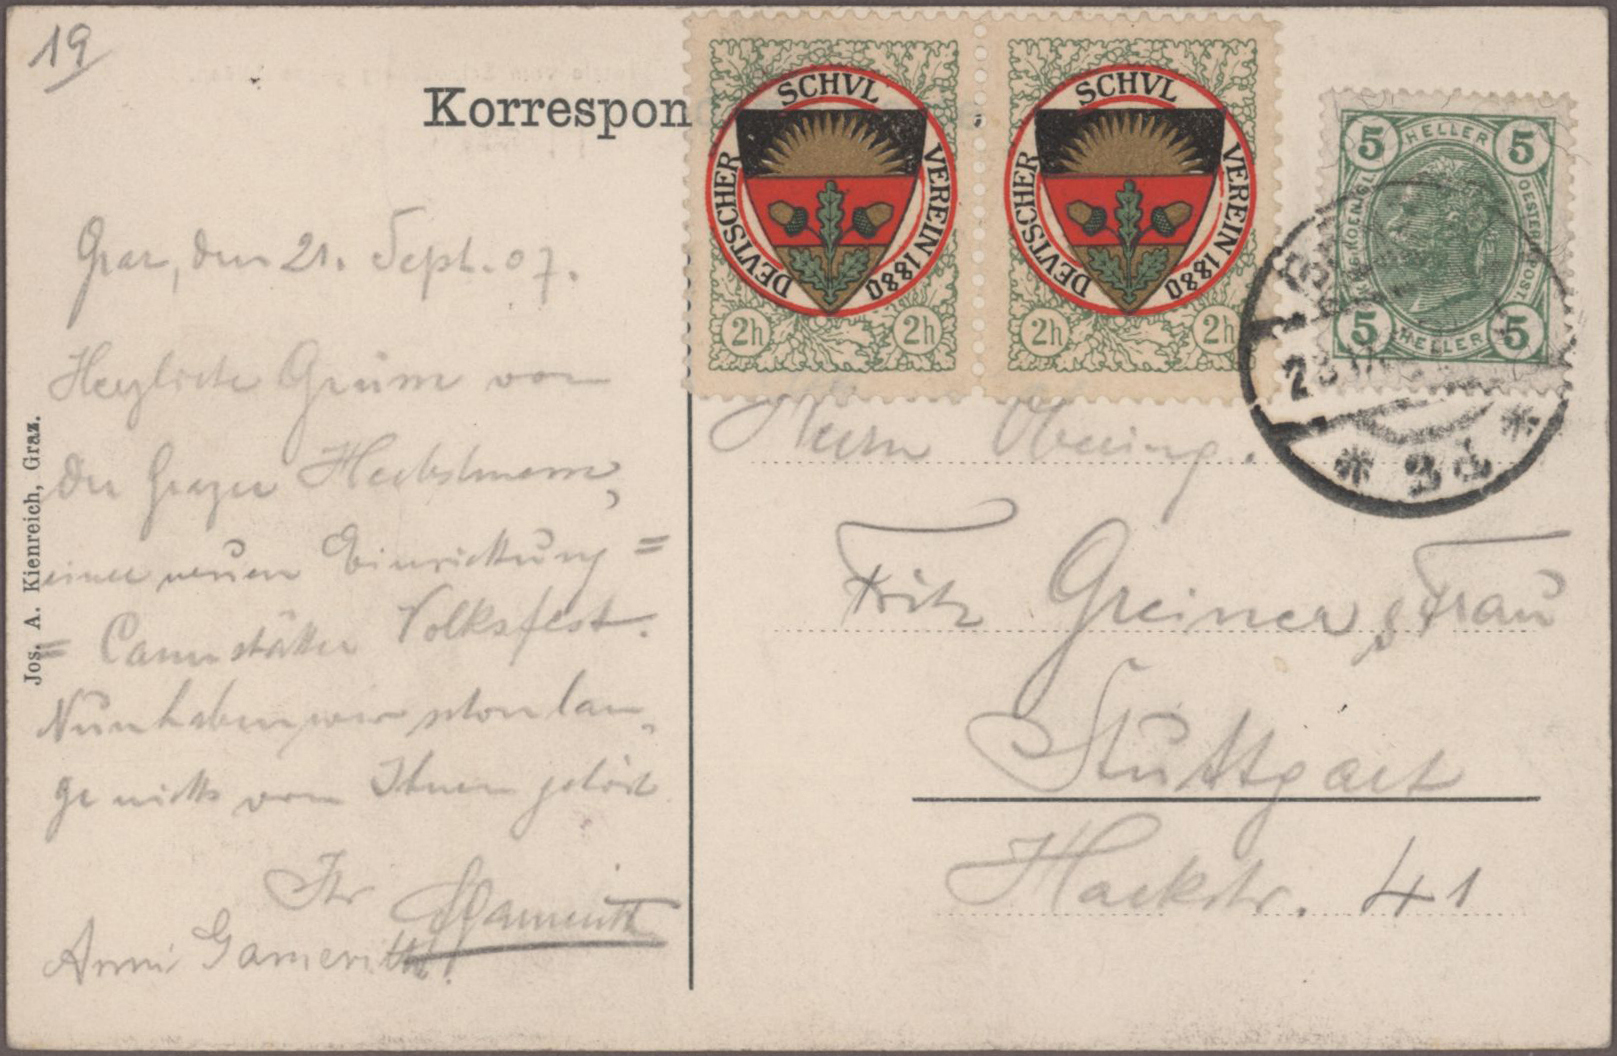 19
Korrespon
SCHVL
DEVTSCHER
VEREIN 1880
2h 2h
SCHVL
DEVTSCHER
VEREIN 1880
2h 2h
5 HELLER 5
5 HELLER 5
Graz, den 21. Sept. 07.
Herzliche Grüsse von
der Grazer Herbstmesse,
einer neuen Einrichtung =
= Cannstätter Volksfest.
Nun haben wir schon lan-
ge nichts von Ihnen gehört
Ihr
Anni Gamerith.
Jos. A. Kienreich, Graz.
Herrn Obering.
Fritz Greiner & Frau
Stuttgart
Hackstr. 41